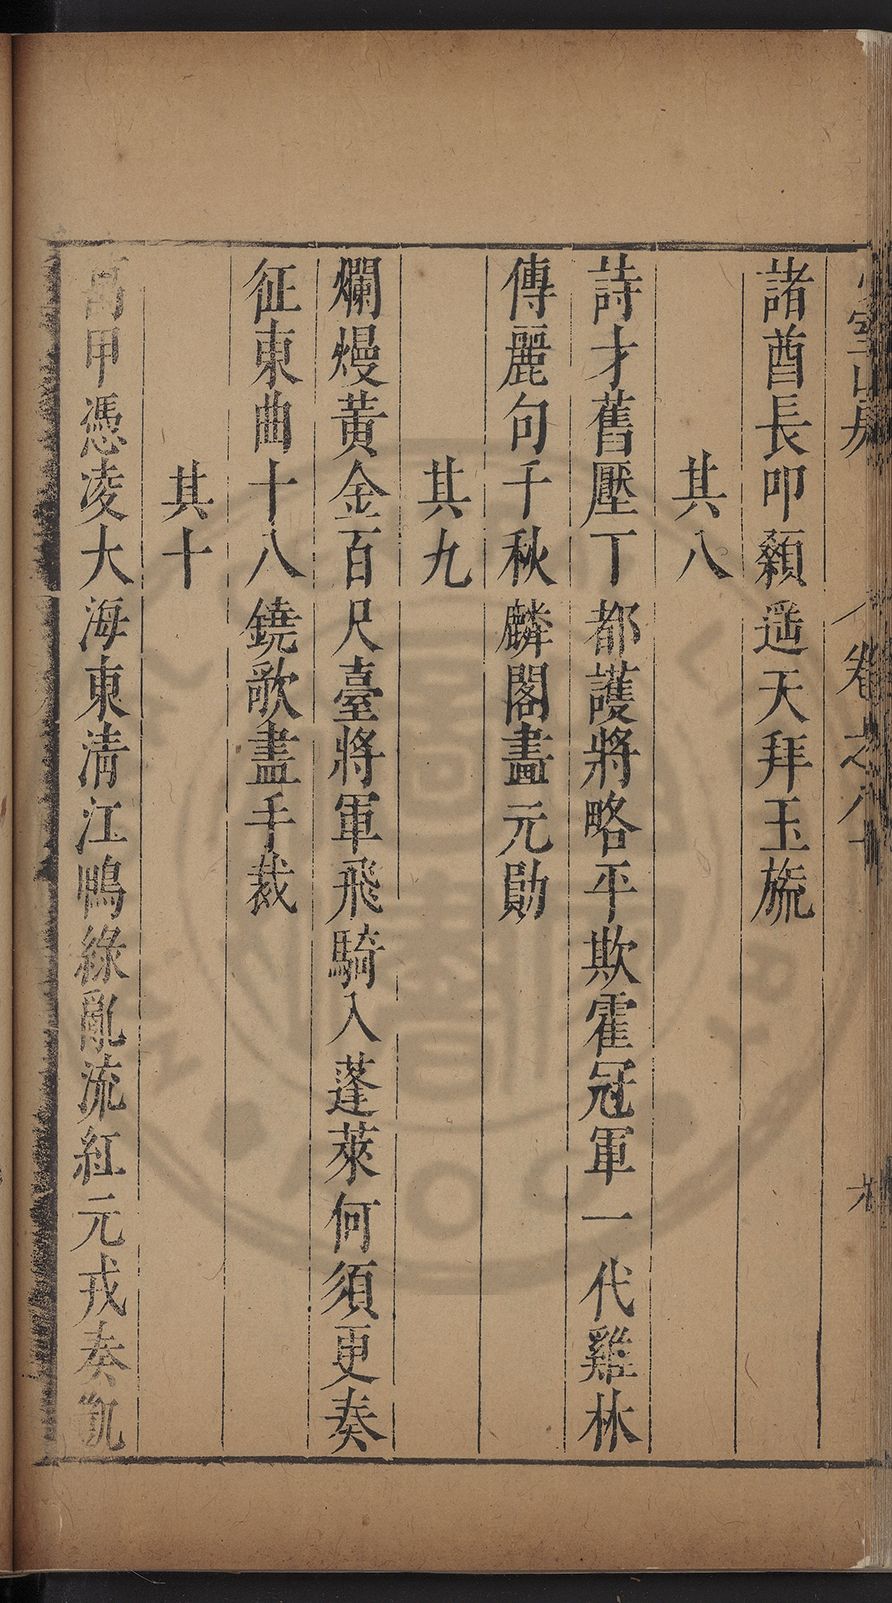 少室山房
卷之八十
諸酋長叩顙遥天拜玉旒
其八
詩才舊壓丁都護將略平欺霍冠軍一代雞林
傳麗句千秋麟閣畫元勛
其九
爛熳黃金百尺臺將軍飛騎入蓬萊何須更奏
征東曲十八鐃歌盡手裁
其十
萬甲憑凌大海東清江鴨綠亂流紅元戎奏凱